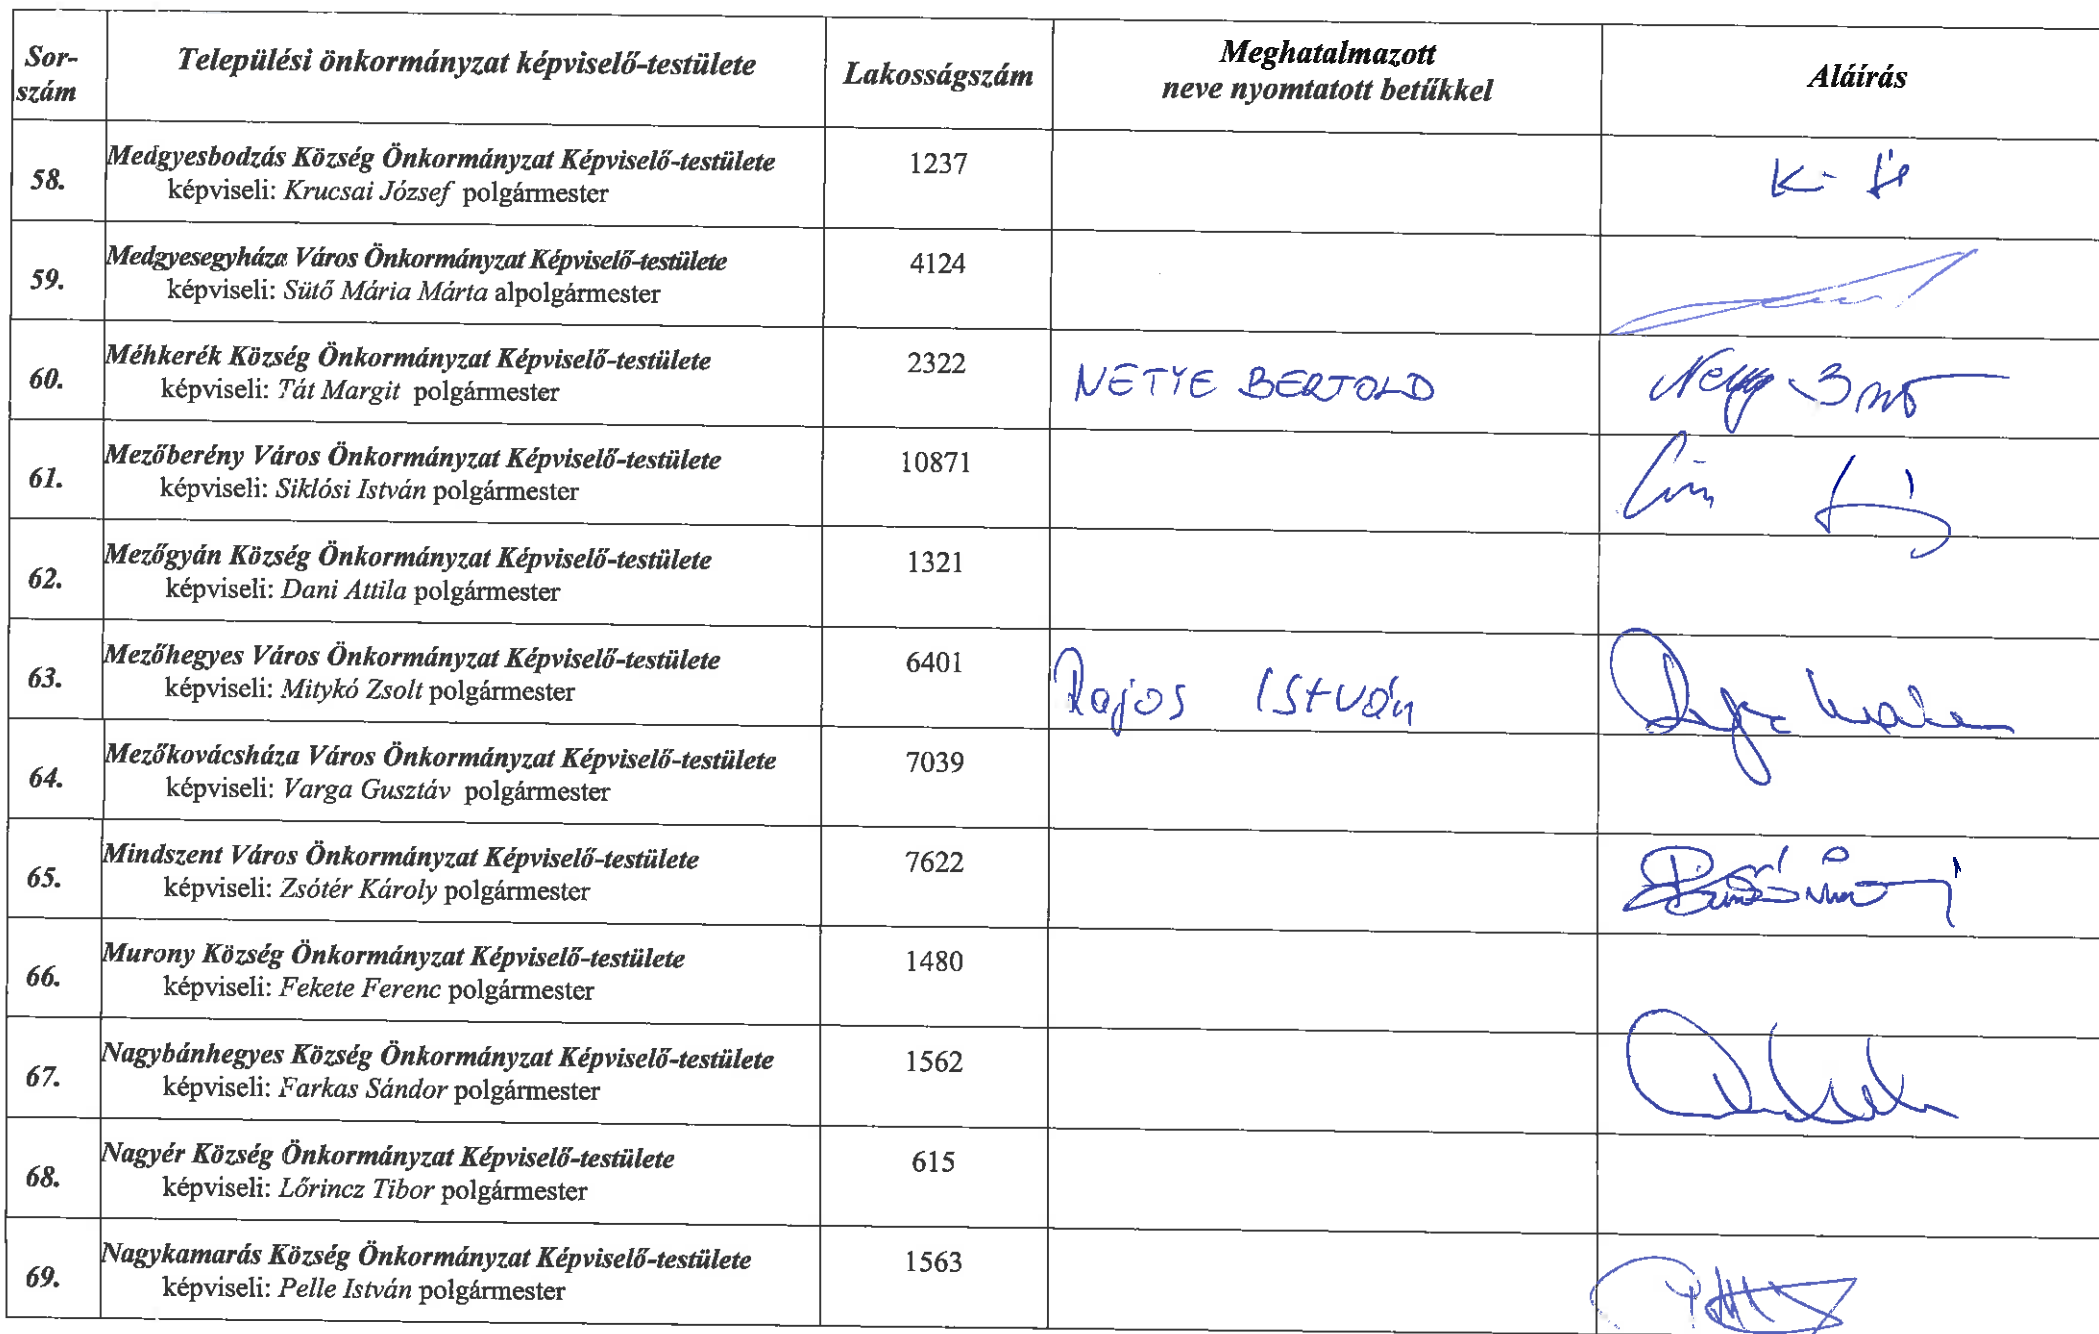 Sor-
szám
Települési önkormányzat képviselő-testülete
Lakosságszám
Meghatalmazott
neve nyomtatott betűkkel
Aláírás
58.
Medgyesbodzás Község Önkormányzat Képviselő-testülete
képviseli: Krucsai József polgármester
1237
59.
Medgyesegyháza Város Önkormányzat Képviselő-testülete
képviseli: Sütő Mária Márta alpolgármester
4124
60.
Méhkerék Község Önkormányzat Képviselő-testülete
képviseli: Tát Margit polgármester
2322
NETYE BERTOLD
61.
Mezőberény Város Önkormányzat Képviselő-testülete
képviseli: Siklósi István polgármester
10871
62.
Mezőgyán Község Önkormányzat Képviselő-testülete
képviseli: Dani Attila polgármester
1321
63.
Mezőhegyes Város Önkormányzat Képviselő-testülete
képviseli: Mitykó Zsolt polgármester
6401
István
64.
Mezőkovácsháza Város Önkormányzat Képviselő-testülete
képviseli: Varga Gusztáv polgármester
7039
65.
Mindszent Város Önkormányzat Képviselő-testülete
képviseli: Zsótér Károly polgármester
7622
66.
Murony Község Önkormányzat Képviselő-testülete
képviseli: Fekete Ferenc polgármester
1480
67.
Nagybánhegyes Község Önkormányzat Képviselő-testülete
képviseli: Farkas Sándor polgármester
1562
68.
Nagyér Község Önkormányzat Képviselő-testülete
képviseli: Lőrincz Tibor polgármester
615
69.
Nagykamarás Község Önkormányzat Képviselő-testülete
képviseli: Pelle István polgármester
1563